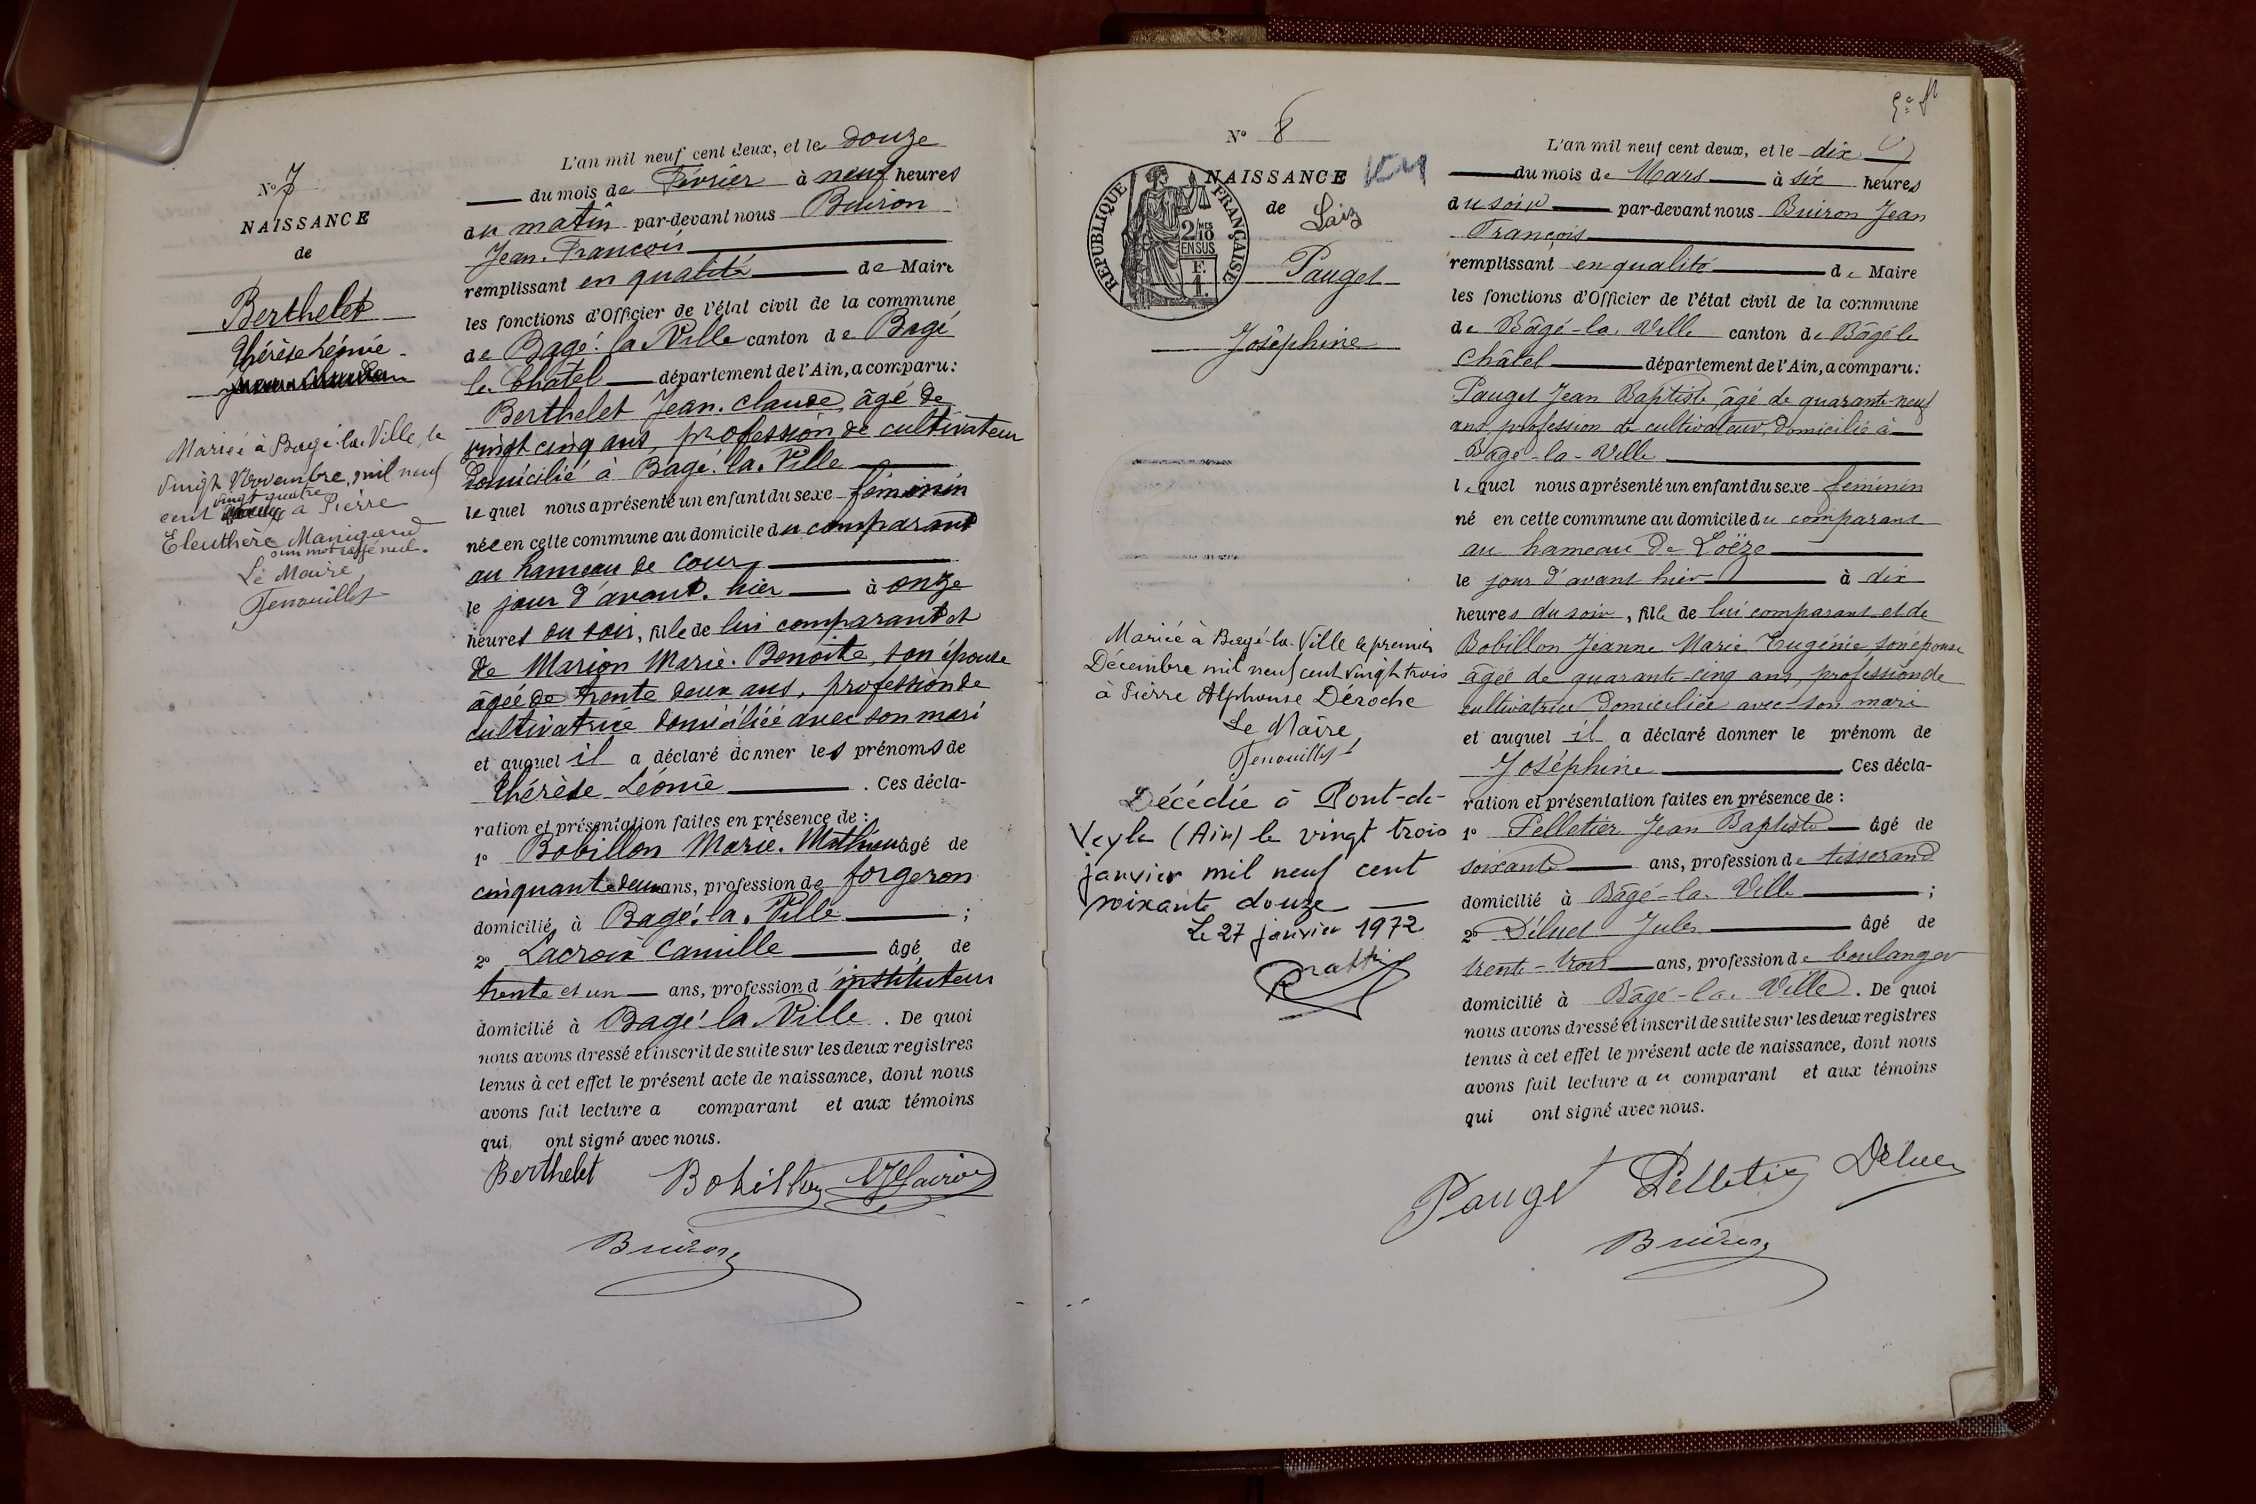 N° 7
NAISSANCE
de
Berthelet
Thérèse Léonie
Mariée à Bagé-la-Ville, le
vingt Novembre mil neuf
vingt quatre
cent à Pierre
Eleuthère Manigand
un mot rayé nul.
Le Maire
Fenouillet
L'an mil neuf cent deux, et le douze
du mois de Février à neuf heures
du matin par-devant nous Buiron
Jean François
remplissant en qualité de Maire
les fonctions d'Officier de l'état civil de la commune
de Bagé-la-Ville canton de Bagé
le Châtel département de l'Ain, a comparu:
Berthelet Jean-Claude, âgé de
vingt cinq ans, profession de cultivateur
domicilié à Bagé-la-Ville
lequel nous a présenté un enfant du sexe féminin
née en cette commune au domicile du comparant
au hameau de Cour
le jour d'avant-hier à onze
heures du soir, fille de lui comparant et
de Marion Marie-Benoite, son épouse
âgée de trente deux ans, profession de
cultivatrice domiciliée avec son mari
et auquel il a déclaré donner les prénoms de
Thérèse Léonie . Ces décla-
ration et présentation faites en présence de :
1° Bobillon Marie-Mathieu âgé de
cinquante deux ans, profession de forgeron
domicilié à Bagé-la-Ville ;
2° Lacroix Camille âgé de
trente et un ans, profession d'instituteur
domicilié à Bagé-la-Ville . De quoi
nous avons dressé et inscrit de suite sur les deux registres
tenus à cet effet le présent acte de naissance, dont nous
avons fait lecture a comparant et aux témoins
qui ont signé avec nous.
Berthelet Bobillon Lacroix
Buiron
N° 8
NAISSANCE
de Laiz
RÉPUBLIQUE FRANÇAISE
2/10 MES
EN SUS
F.
1
Pauget
Joséphine
Mariée à Bagé-la-Ville le premier
Décembre mil neuf cent vingt trois
à Pierre Alphonse Déroche
Le Maire,
Fenouillet
Décédée à Pont-de-
Veyle (Ain) le vingt trois
janvier mil neuf cent
soixante douze
Le 27 janvier 1972
L'an mil neuf cent deux, et le dix
du mois de Mars à six heures
du soir par-devant nous Buiron Jean
François
remplissant en qualité de Maire
les fonctions d'Officier de l'état civil de la commune
de Bâgé-la-Ville canton de Bâgé le
Châtel département de l'Ain, a comparu:
Pauget Jean Baptiste, âgé de quarante-neuf
ans, profession de cultivateur, domicilié à
Bâgé-la-Ville
lequel nous a présenté un enfant du sexe féminin
né en cette commune au domicile du comparant
au hameau de Loëze
le jour d'avant hier à dix
heures du soir, fille de lui comparant et de
Bobillon Jeanne Marie Eugénie, son épouse
âgée de quarante-cinq ans, profession de
cultivatrice domiciliée avec son mari
et auquel il a déclaré donner le prénom de
Joséphine . Ces décla-
ration et présentation faites en présence de :
1° Pelletier Jean Baptiste âgé de
soixante ans, profession de tisserand
domicilié à Bâgé-la-Ville ;
2° Déluet Jules âgé de
trente-trois ans, profession de boulanger
domicilié à Bâgé-la-Ville . De quoi
nous avons dressé et inscrit de suite sur les deux registres
tenus à cet effet le présent acte de naissance, dont nous
avons fait lecture au comparant et aux témoins
qui ont signé avec nous.
Pauget Pelletier Déluet
Buiron